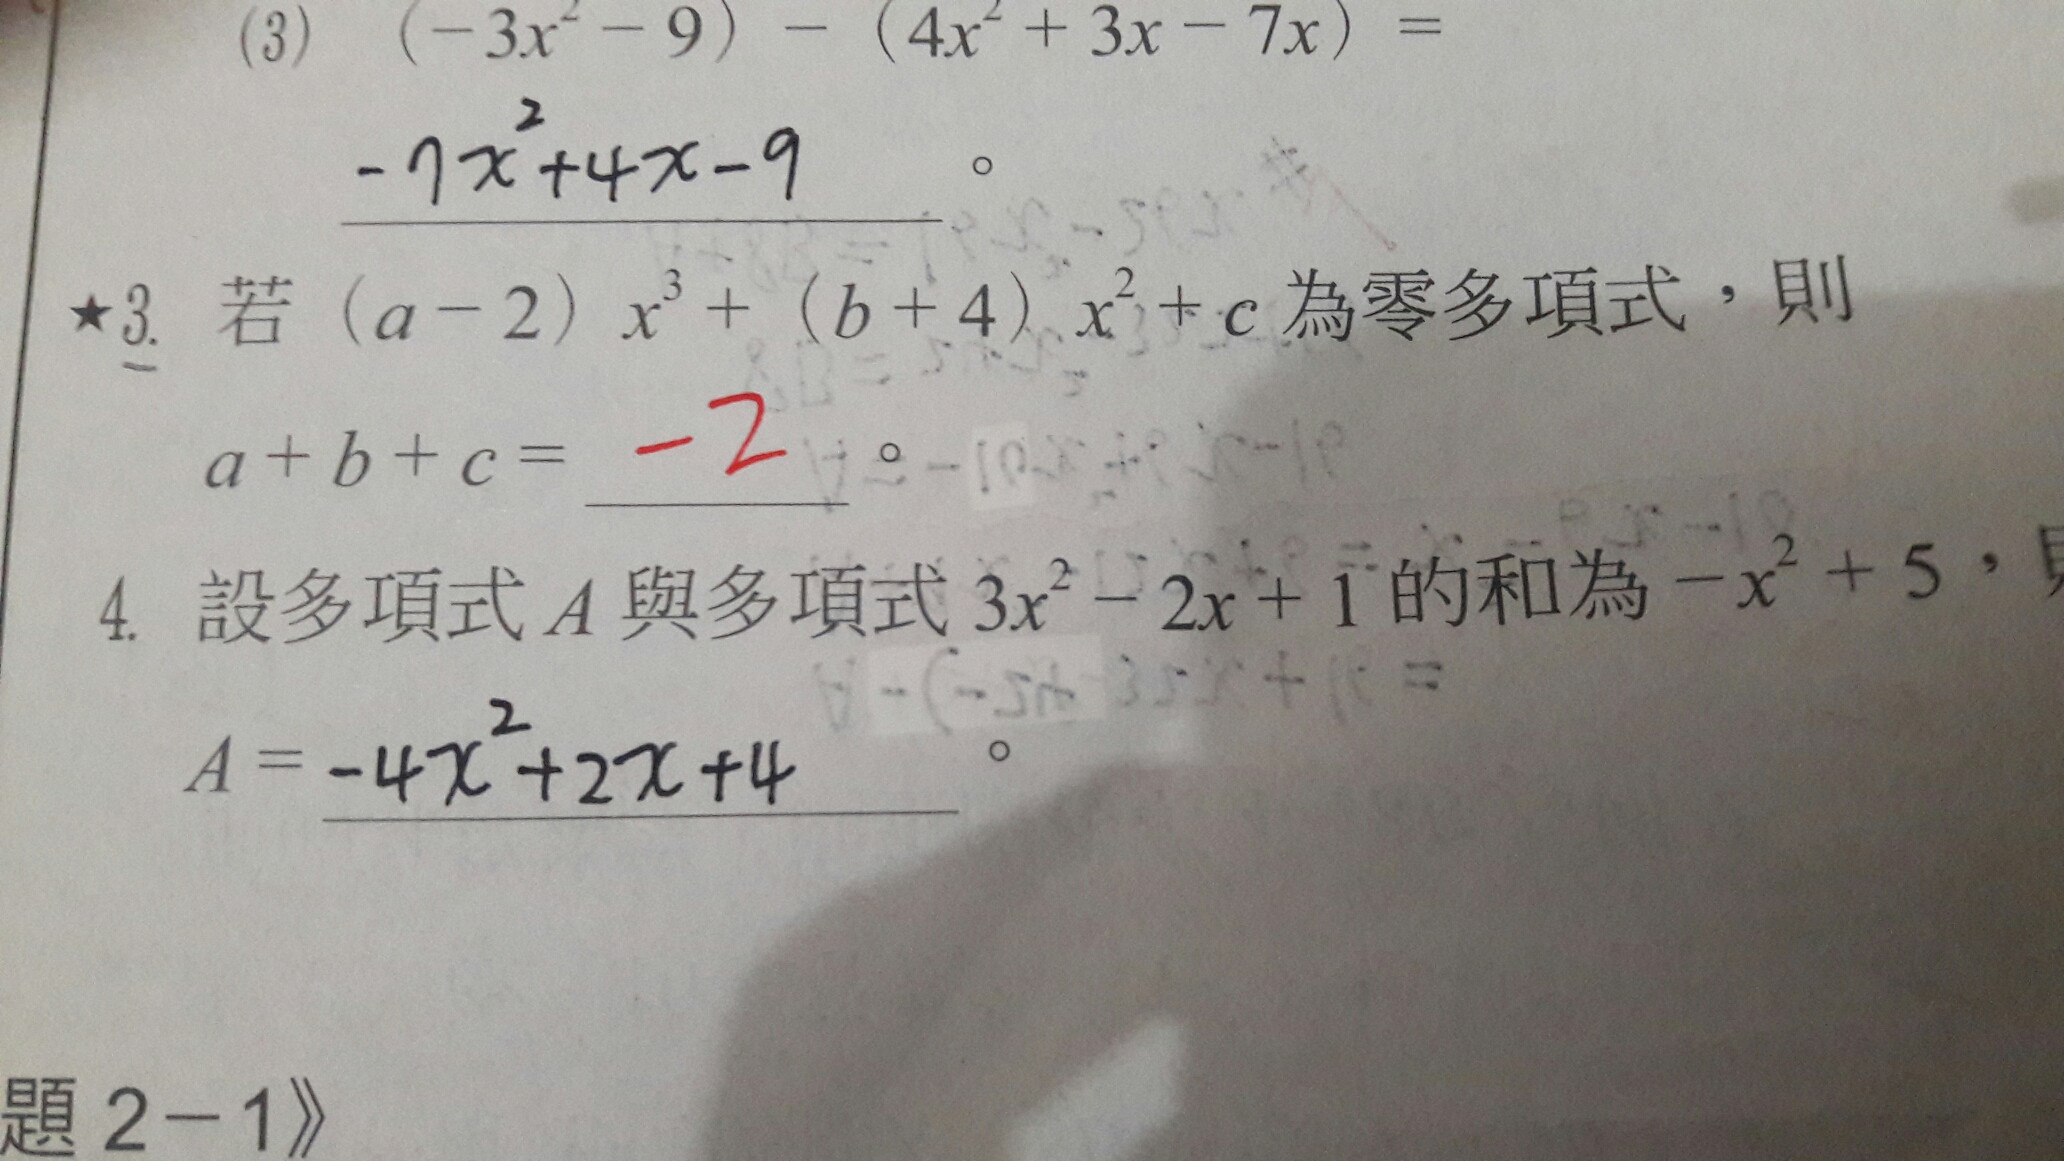 (3) (-3x²-9)-(4x²+3x-7x)=
-7x²+4x-9 。
★3. 若(a-2)x³+(b+4)x²+c為零多項式，則
a+b+c= -2 。
4. 設多項式A與多項式3x²-2x+1的和為-x²+5，
A= -4x²+2x+4 。
題2-1》